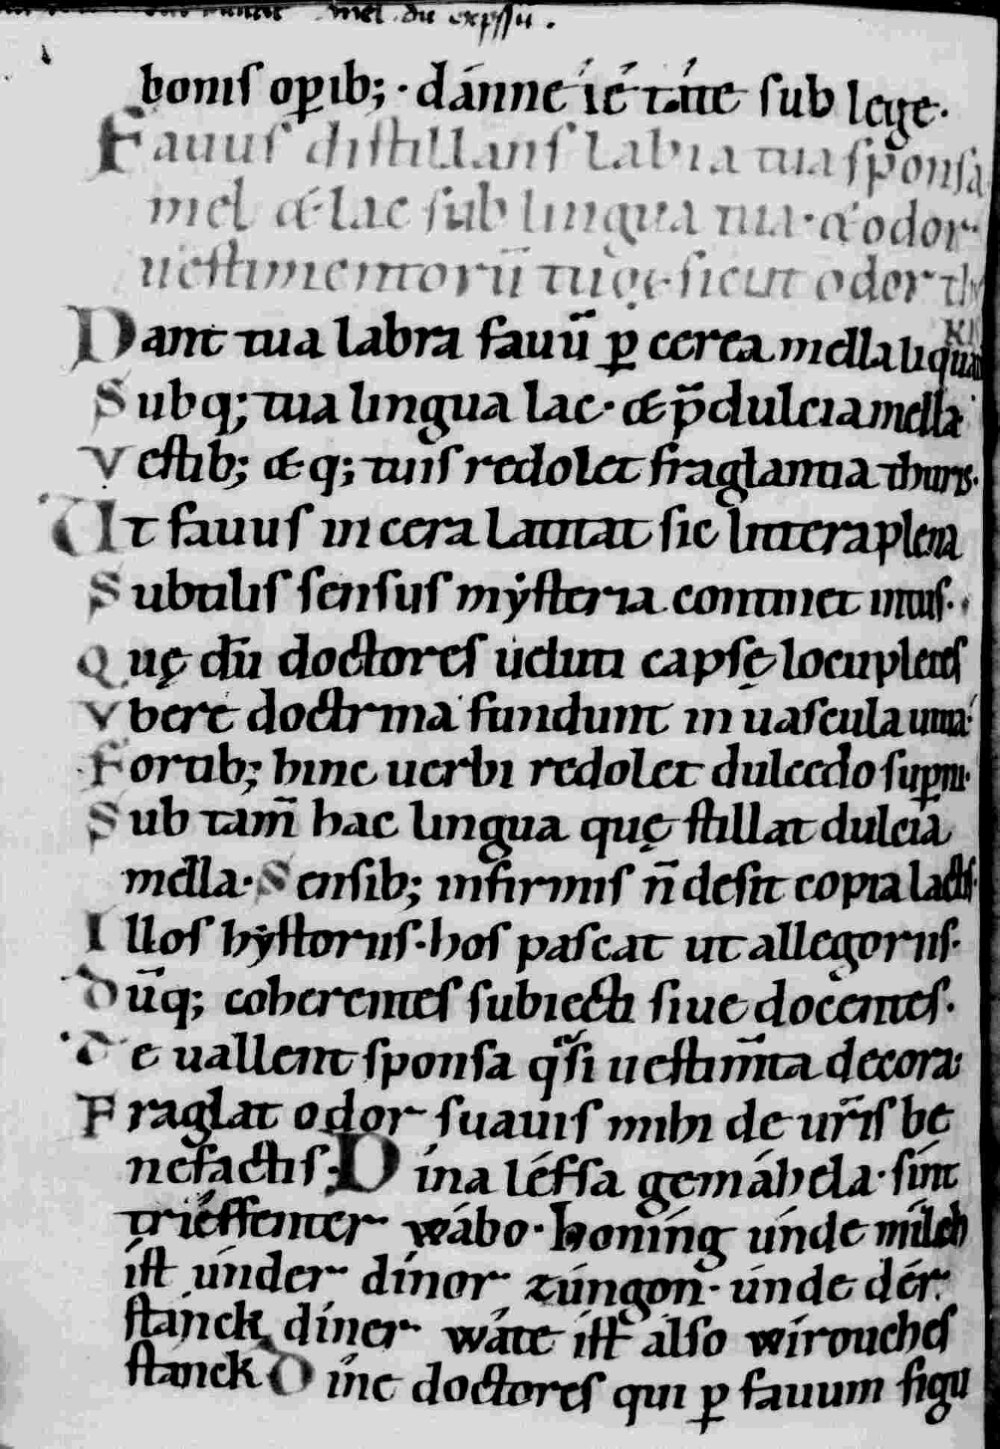 mel. du expssu.
bonis opib; · dánne ié táte sub lege·
Fauus distillans labia tua sponsa
mel & lac sub lingua tua· & odor
uestimentorū tuoꝝ sicut odor th
KIS
Dant tua labra fauū ꝑ cerea mella liquat
Subq; tua lingua lac· & p̄dulcia mella
Vestib; &q; tuis redolet fraglantia thuris·
Ut fauus in cera latitat sic littera plena
Subtilis sensus mẏsteria continet intus·
Quę dū doctores uelut capsę locupletes
Vbere doctrina fundunt in uascula uiua·
Fortib; hinc uerbi redolet dulcedo supni·
Sub tam̄ hac lingua quę stillat dulcia
mella· Sensib; infirmis n̄ desit copia lactis·
Illos hẏstoriis· hos pascat ut allegoriis·
Dūq; coherentes subiecti siue docentes·
Te uallent sponsa q̄si uestim̄ta decora·
Fraglat odor suauis mihi de ur̄is be
nefactis· Dina léfsa gemáhela· sínt
triéffenter wábo· honíng únde mílch
íst únder dínor zúngon· únde dér
stánck díner wâte íst álso wírouches
stanck Díne doctores qui ꝑ fauum figu